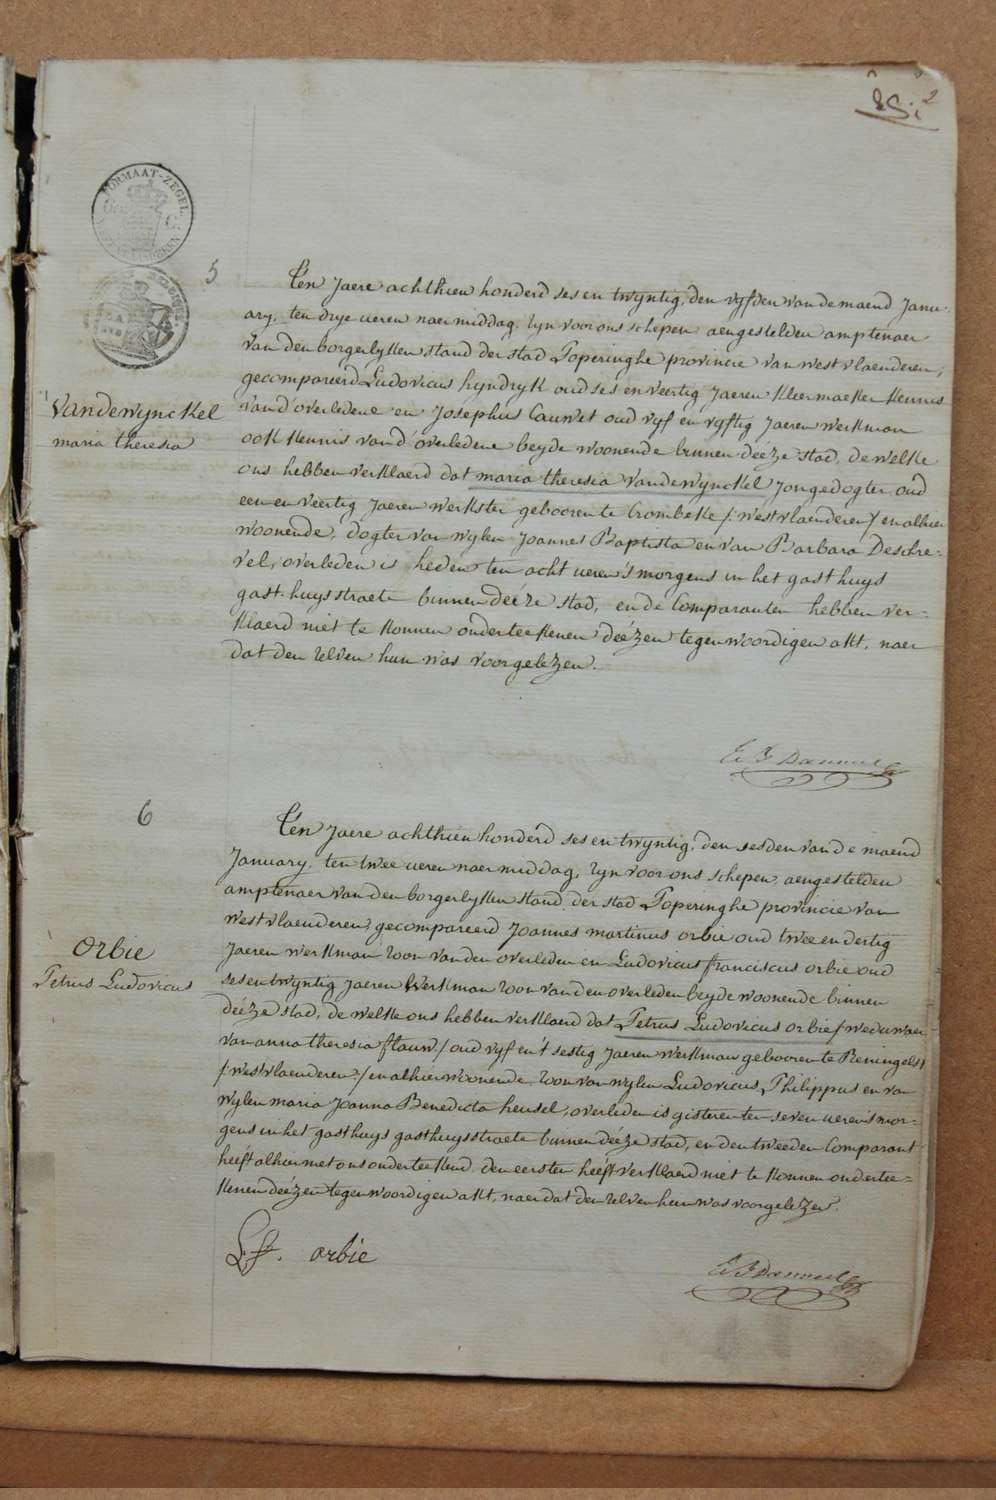 2
FORMAAT-ZEGEL
5
Ten Jaere achthien honderd ses en twyntig, den vyfden van de maend Janu-
ary, ten drye ueren naer middag, zyn voor ons schepen aengestelden amptenaer
van den borgerlyken stand der stad Poperinghe provincie van westvlaenderen,
gecompareerd Ludovicus hyndryk oud ses en veertig Jaeren kleermaeker kennis
van d'overledene en Josephus Cauwet oud vyf en vyftig Jaeren werkman
ook kennis van d'overledene beyde woonende binnen déeze stad, de welke
ons hebben verklaerd dat maria theresia vandewynckel Jongedogter oud
een en veertig Jaeren werkster gebooren te Crombeke /westvlaenderen/ en alhier
woonende, dogter van wylen Joannes Baptista en van Barbara Deschre-
vel, overleden is heden ten acht ueren s'morgens in het gasthuys
gast-huysstraete binnen déeze stad, en de Comparanten hebben ver-
klaerd niet te konnen onderteekenen déezen tegenwoordigen akt, naer
dat den zelven hun was voorgelezen.
Vandewynckel
maria theresia
6
Ten Jaere achthien honderd ses en twyntig, den sesden van de maend
January, ten twee ueren naer middag, zyn voor ons schepen, aengestelden
amptenaer van den borgerlyken stand, der stad Poperinghe provincie van
westvlaenderen, gecompareerd Joannes martinus orbie oud twee en dertig
Jaeren werkman zoon van den overleden en Ludovicus franciscus orbie oud
ses en twyntig Jaeren Werkman zoon van den overleden beyde woonende binnen
déeze stad, de welke ons hebben verklaerd dat Petrus Ludovicus orbie /weduwaer
van anna theresia flauw/ oud vyf en t'sestig Jaeren werkman gebooren te Reningelst
/westvlaenderen/ en alhier woonende, zoon van wylen Ludovicus, Philippus en van
wylen maria Joanna Benedicta heusel, overleden is gisteren ten seven ueren s'mor-
gens in het gasthuys gasthuysstraete binnen déeze stad, en den tweeden Comparant
heeft alhier met ons onderteekend, den eersten heeft verklaerd niet te konnen ondertee-
kenen déezen tegenwoordigen akt, naer dat den zelven hun was voorgelezen.
orbie
Petrus Ludovicus
L f. orbie